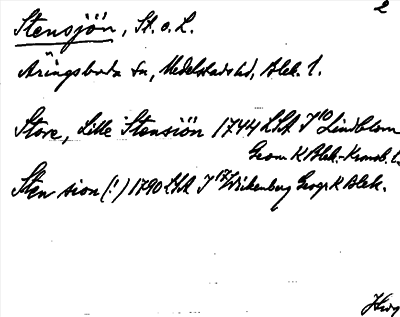 2
Stensjön, St. o. L.
Åringsboda sn, Medelstads hd, Blek. l.
Store, Lille Stensiön 1744 LSA J10 Lindblom
Geom K Blek.-Kronob. l.
Sten sion (!) 1790 LSA J17 Wickenberg Geogr K Blek.